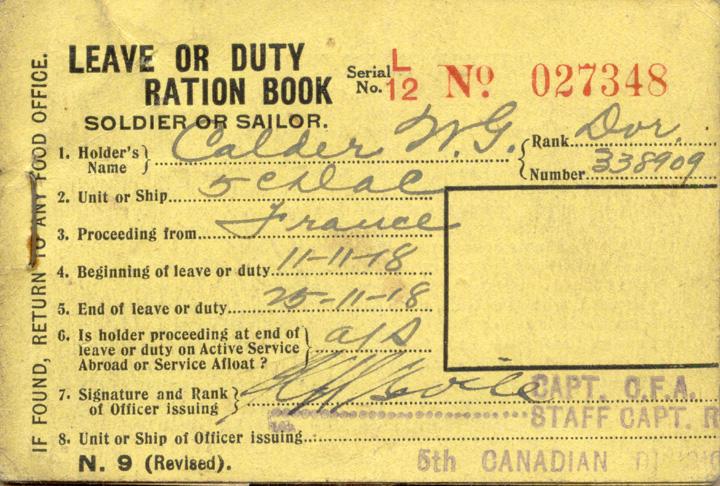 LEAVE OR DUTY
RATION BOOK
SOLDIER OR SAILOR.
Serial No. L/12 No. 027348
1. Holder's Name Calder W.G. Rank Dvr.
Number 338909
2. Unit or Ship 5 C DAC
3. Proceeding from France
4. Beginning of leave or duty 11-11-18
5. End of leave or duty 25-11-18
6. Is holder proceeding at end of leave or duty on Active Service Abroad or Service Afloat? a/s
7. Signature and Rank of Officer issuing
CAPT. C.F.A.
STAFF CAPT. R
8. Unit or Ship of Officer issuing
5th CANADIAN
N. 9 (Revised).
IF FOUND, RETURN TO ANY FOOD OFFICE.